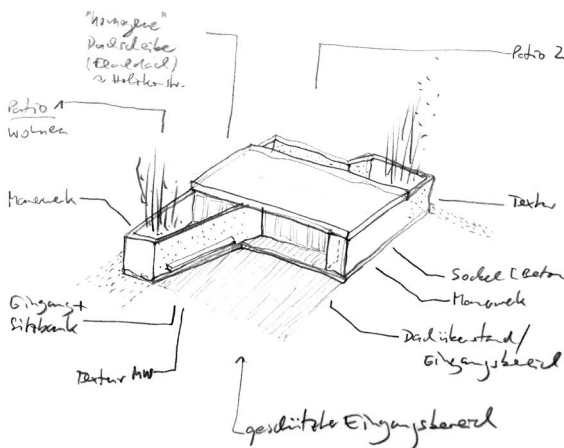 "homogene"
Dachscheibe
(Flachdach)
~ Holzkonstr.
Patio 2
Patio 1
Wohnen
Mauerwerk
Textur
Sockel (Beton
Mauerwerk
Eingang +
Sitzbank
Dachüberstand/
Eingangsbereich
Textur MW
geschützter Eingangsbereich